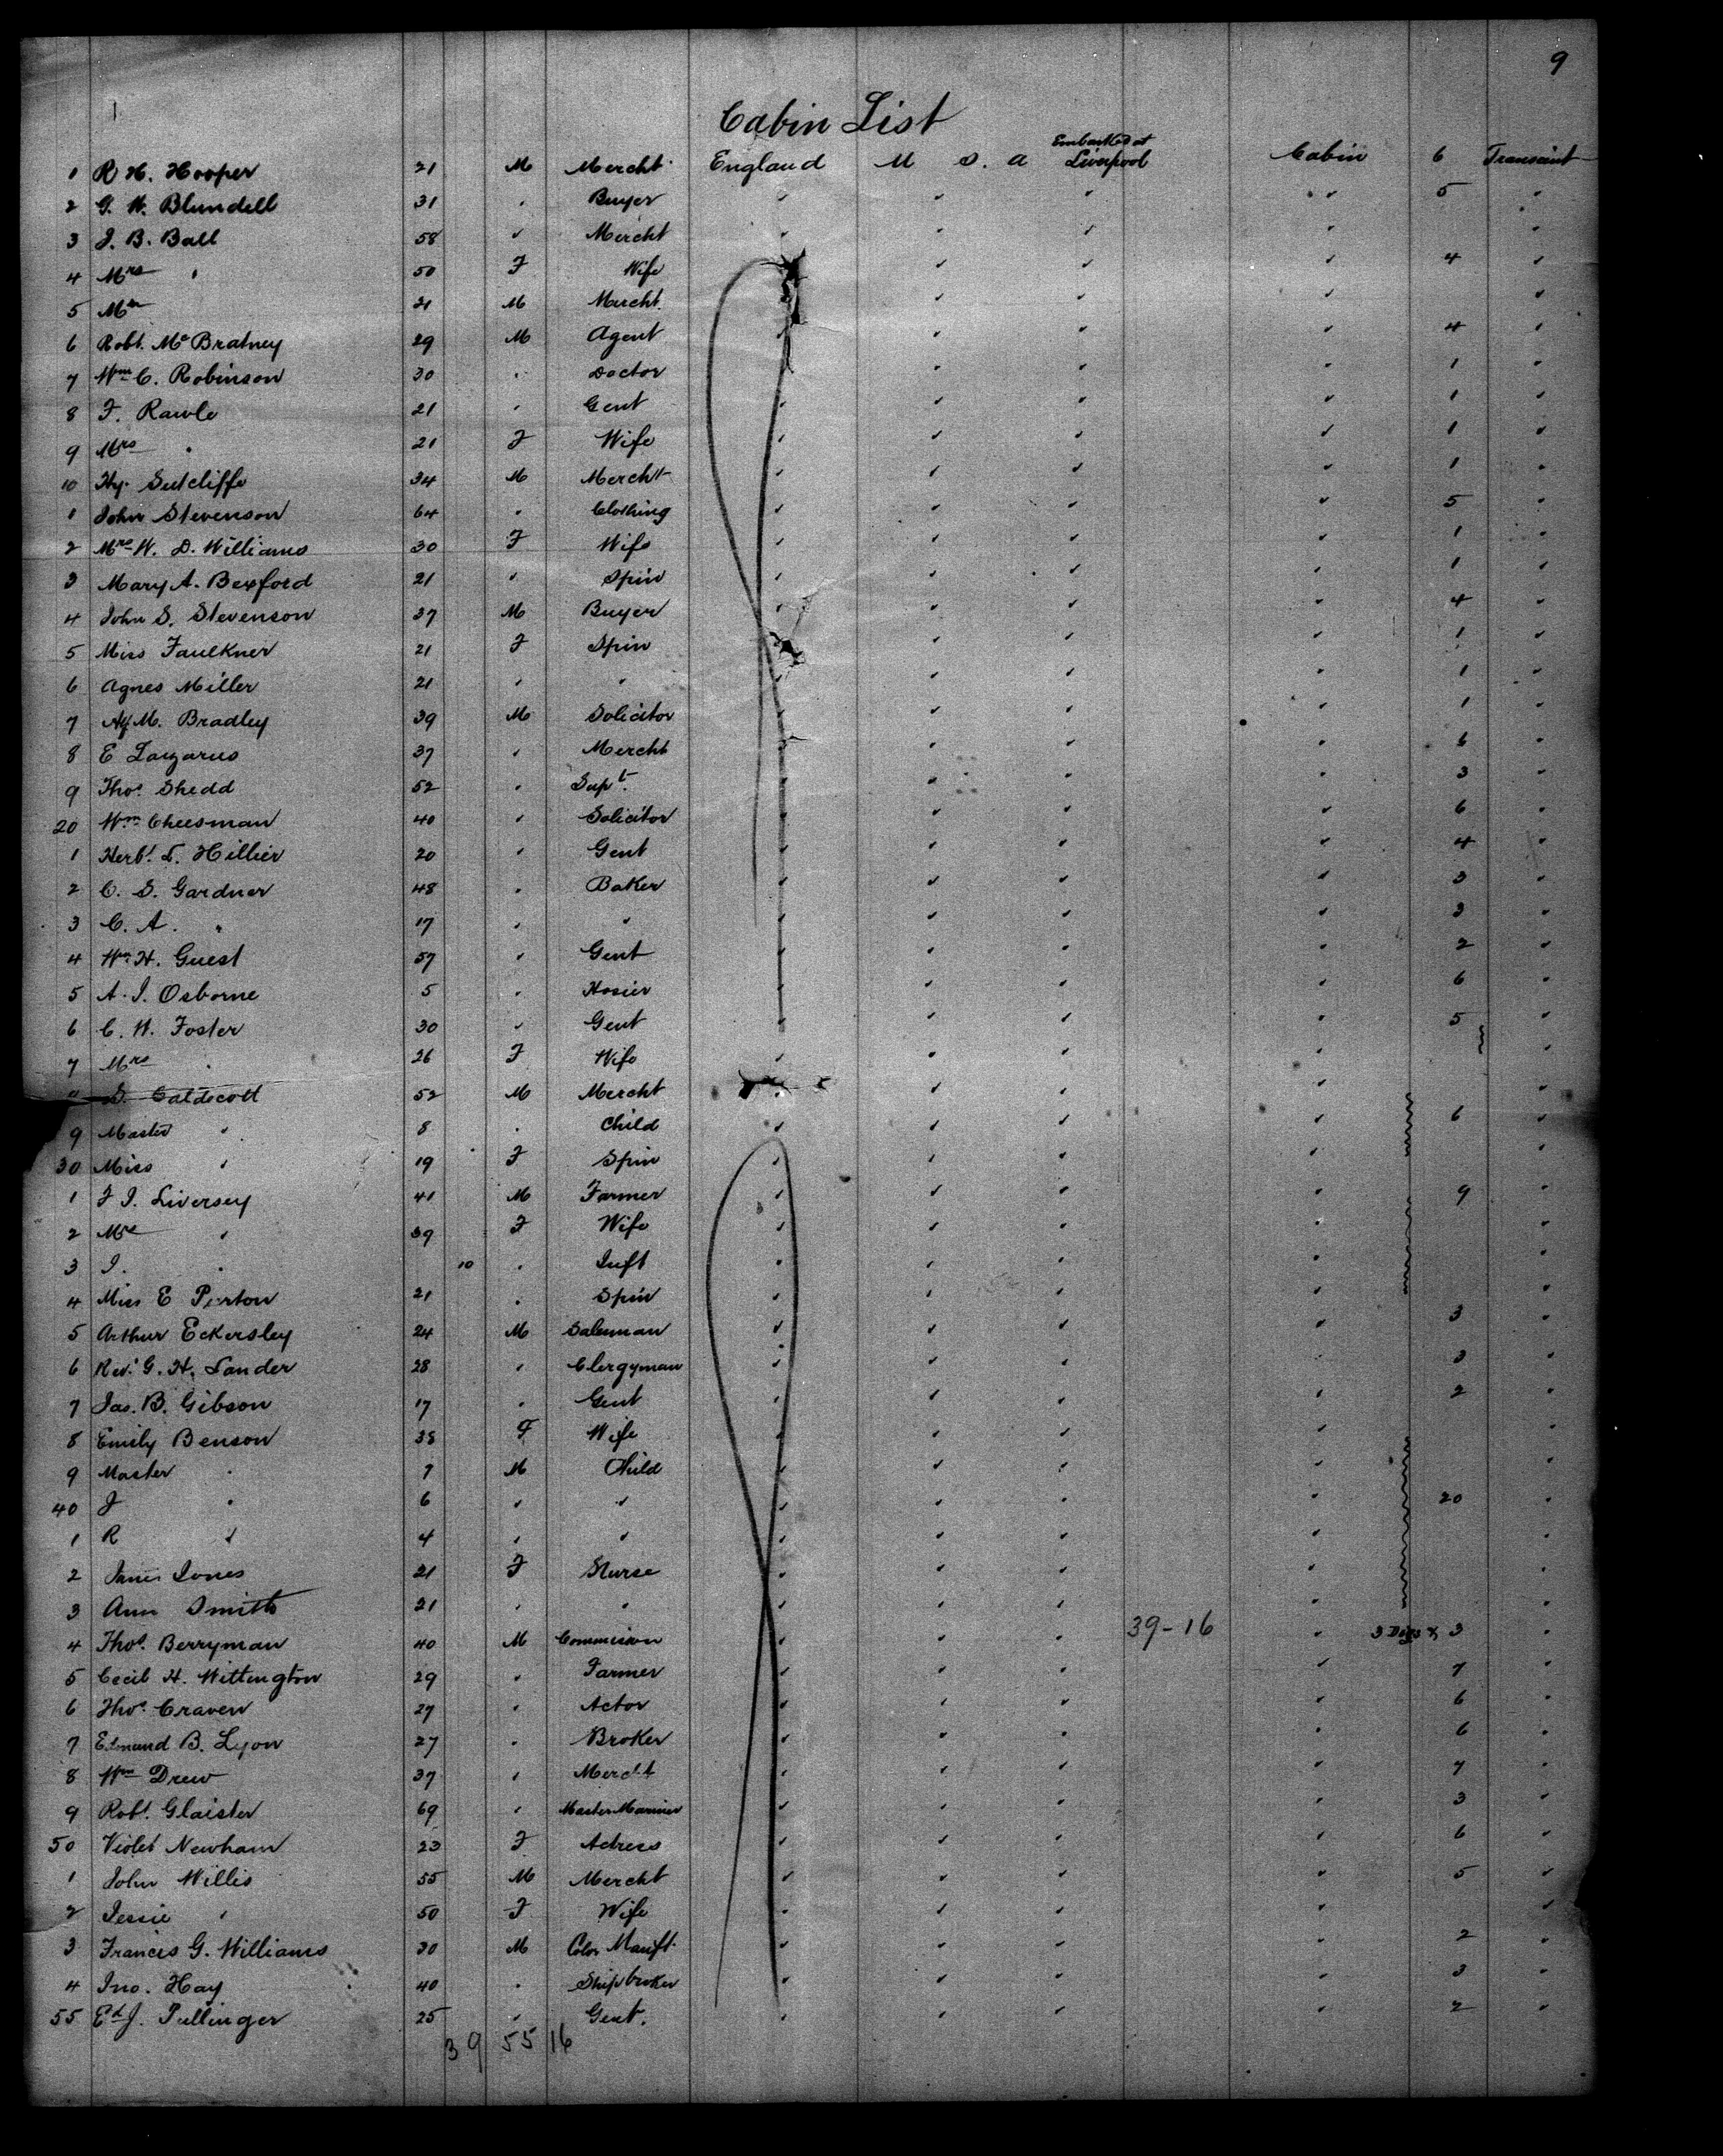 9
Cabin List
Embarked at
1 R H. Hooper 21 M Mercht England U S. A Liverpool Cabin 6 Transcint
2 G. W. Blundell 31 " Buyer " " " " 5 "
3 J. B. Ball 58 " Mercht " " " " "
4 Mrs " 50 F Wife " " " 4 "
5 Mr 21 M Mercht. " " " "
6 Robt. Mc Bratney 29 M Agent " " " " 4 "
7 Wm C. Robinson 30 " Doctor " " " 1 "
8 F. Rawle 21 " Gent " " " " 1 "
9 Mrs " 21 F Wife " " " " 1 "
10 Hy. Sutcliffe 34 M Mercht " " " " 1 "
1 John Stevenson 64 " Clothing " " " " 5 "
2 Mrs W. D. Williams 30 F Wife " " " " 1 "
3 Mary A. Bexford 21 " Spin " " " " 1 "
4 John S. Stevenson 37 M Buyer " " " " 4 "
5 Miss Faulkner 21 F Spin " " " 1 "
6 Agnes Miller 21 " " " " " " 1 "
7 M. Bradley 39 M Solicitor " " " " 1 "
8 E Lazarus 37 " Mercht " " " " 6 "
9 Thos. Shedd 52 " Supt. " " " " 3 "
20 Wm Cheesman 40 " Solicitor " " " " 6 "
1 Herbt. L. Hillier 20 " Gent " " " " 4 "
2 C. S. Gardner 48 " Baker " " " " 3 "
3 C. A. " 17 " " " " " " 3 "
4 Wm H. Guest 57 " Gent " " " " 2 "
5 A. J. Osborne 5 " Hosier " " " " 6 "
6 C. W. Foster 30 " Gent " " " " 5 "
7 Mrs " 26 F Wife " " " " "
S. Caldecott 52 M Mercht " " " " "
9 Master " 8 " Child " " " " 6 "
30 Miss " 19 F Spin " " " " "
1 F J. Liversey 41 M Farmer " " " " 9 "
2 Mrs " 39 F Wife " " " " "
3 J. " 10 " Inft " " " " "
4 Miss E Porton 21 " Spin " " " " "
5 Arthur Eckersley 24 M Salesman " " " " 3 "
6 Revd. G. H. Lander 28 " Clergyman " " " " 3 "
7 Jas. B. Gibson 17 " Gent " " " " 2 "
8 Emily Benson 38 F Wife " " " " "
9 Master " 7 M Child " " " " "
40 J " 6 " " " " " " 20 "
1 R " 4 " " " " " " "
2 Janes Jones 21 F Nurse " " " " "
3 Ann Smith 21 " " " " " " "
4 Thos. Berryman 40 M Commission " " " 39-16 " 3 Dogs & 3 "
5 Cecil H. Wittington 29 " Farmer " " " " 7 "
6 Thos. Craven 27 " Actor " " " " 6 "
7 Edmund B. Lyon 27 " Broker " " " " 6 "
8 Wm Drew 37 " Mercht " " " " 7 "
9 Robt. Glaister 69 " Master Mariner " " " " 3 "
50 Violet Newham 23 F Actress " " " " 6 "
1 John Willis 55 M Mercht " " " " 5 "
2 Jessie " 50 F Wife " " " " "
3 Francis G. Williams 30 M Color Manft. " " " " 2 "
4 Jno. Hay 40 " Shipbroker " " " " 3 "
55 Ed J. Pullinger 25 " Gent. " " " " 2 "
39 55 16